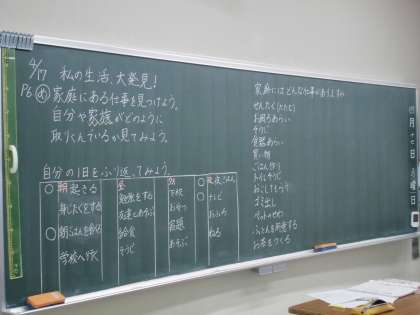 4/17 私の生活、大発見！
P6 め 家庭にある仕事を見つけよう。
自分や家族がどのように
取りくんでいるか見てみよう。
自分の1日をふり返ってみよう。
○ 朝起きる
身じたくをする
○ 朝ごはんを食べる
学校へ行く
昼
勉強をする
友達とあそぶ
給食
そうじ
夕
下校
おやつ
宿題
あそぶ
○ 夜 夜ごはん
○ テレビ
おふろ
ねる
家庭にはどんな仕事がありますか
せんたく(たたむ)
お風呂あらい
そうじ
食器あらい
買い物
ごはん作り
トイレそうじ
おこしてもらう
ゴミ出し
ペットのせわ
ふとんを用意する
お茶をつくる
四月十七日(月曜)日